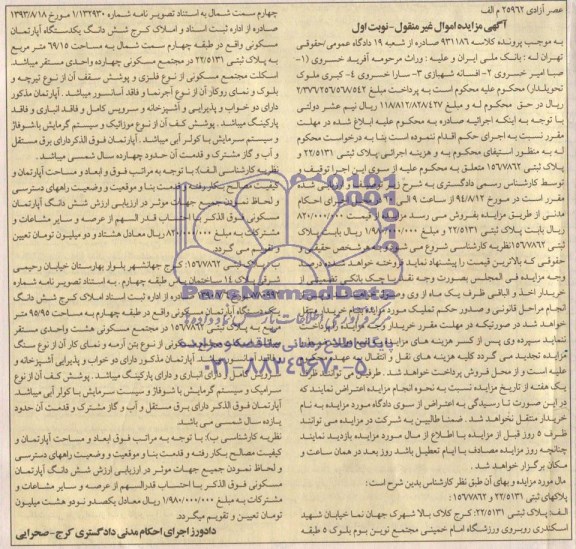 عصر آزادی ۲۵۹۶۲ م الف
آگهی مزایده اموال غیر منقول-نوبت اول
به موجب پرونده کلاسه ۹۳۱۱۸۶ صادره از شعبه ۱۹ دادگاه عمومی حقوقی
تهران له: بانک ملی ایران و علیه: وراث مرحومه آفرید خسروی (۱-
صبا امیر خسروی ۲- افسانه شهبازی ۳- سارا خسروی ۴- کبری ملوک
تحویلدار) محکوم علیه محکوم است به پرداخت مبلغ
ریال در حق محکوم له و مبلغ ۱۱۸/۸۱۲/۸۲۸/۴۲۷ ریال نیم عشر دولتی
با توجه به اینکه اجرائیه صادره به محکوم علیه ابلاغ شده در مهلت
مقرر نسبت به اجرای حکم اقدام ننموده است بنا به درخواست محکوم
له به منظور استیفای محکوم به و هزینه اجرائی پلاک ثبتی ۲۲/۵۱۳۱ و
پلاک ثبتی ۱۵۶۷۷۸۶۲ متعلق به محکوم علیه از سوی این اجرا توقیف و
توسط کارشناس رسمی دادگستری به شرح زیر
مقرر است در مورخ ۹۴/۸/۱۲ از ساعت ۹ الی
مدنی از طریق مزایده بفروش می رسد مزایده از قیمت ۸۲۰/۰۰۰/۰۰۰
ریال بابت پلاک ثبتی ۲۲/۵۱۳۱ و مبلغ ۱/۹۸۰/۰۰۰/۰۰۰ ریال بابت پلاک
ثبتی ۱۵۶۷۷۸۶۲ نظریه کارشناسی شروع می شود و به هر شخص حقیقی و
حقوقی که بالاترین قیمت را پیشنهاد نماید فروخته خواهد شد ده درصد
وجه مزایده فی المجلس بصورت وجه نقد یا چک بانکی تضمینی از
خریدار اخذ و الباقی ظرف یک ماه از وی وصول
انجام مراحل قانونی و صدور حکم تملیک مورد مزایده بنام خریدار منتقل
خواهد شد در صورتیکه در مهلت مقرر خریدار وجه
ننماید سپرده وی پس از کسر هزینه های مزایده
مزایده تجدید می گردد کلیه هزینه های نقل و انتقال به عهده محکوم
علیه است و از محل فروش پرداخت خواهد شد. طرفین می توانند ظرف
یک هفته از تاریخ مزایده نسبت به نحوه انجام مزایده اعتراض نمایند که
در این صورت تا رسیدگی به اعتراض از سوی دادگاه مورد مزایده به نام
خریدار منتقل نخواهد شد. ضمنا طالبین به شرکت در مزایده می توانند
ظرف ۵ روز قبل از مزایده با اطلاع از مال مورد مزایده بازدید نمایند
چنانچه روز مزایده مصادف با ایام تعطیل باشد روز بعد در همان ساعت و
مکان برگزار خواهد شد.
مال مورد مزایده و بهای آن طبق نظر کارشناس بدین شرح است:
پلاکهای ثبتی ۲۲/۵۱۳۱ و ۱۵۶۷۷۸۶۲ :
الف: پلاک ثبتی ۲۲/۵۱۳۱: کرج کلاک بالا شهرک جهان نما خیابان شهید
اسکندری روبروی ورزشگاه امام خمینی مجتمع نوین بوم بلوک ۵ طبقه
چهارم سمت شمال به استناد تصویر نامه شماره ۱/۱۳۲۹۳۰ مورخ ۱۳۹۳/۸/۱۸
صادره از اداره ثبت اسناد و املاک کرج شش دانگ یکدستگاه آپارتمان
مسکونی واقع در طبقه چهارم سمت شمال به مساحت ۶۹/۱۵ متر مربع
به پلاک ثبتی ۲۲/۵۱۳۱ در مجتمع مسکونی چهارده واحدی مستقر میباشد.
اسکلت مجتمع مسکونی از نوع فلزی و پوشش سقف آن از نوع تیرچه و
بلوک و نمای روکار آن از نوع آجرنما و فاقد آسانسور میباشد. آپارتمان مذکور
دارای دو خواب و پذیرایی و آشپزخانه و سرویس کامل و فاقد انباری و فاقد
پارکینگ میباشد. پوشش کف آن از نوع موزائیک و سیستم گرمایش با شوفاژ
و سیستم سرمایش با کولر آبی میباشد. آپارتمان فوق الذکر دارای برق مستقل
و آب و گاز مشترک و قدمت آن حدود چهارده سال شمسی میباشد.
نظریه کارشناسی الف): با توجه به مراتب فوق و ابعاد و مساحت آپارتمان و
کیفیت مصالح بکار رفته و قدمت بنا و موقعیت و وضعیت راههای دسترسی
و لحاظ نمودن جمیع جهات موثر در ارزیابی ارزش شش دانگ آپارتمان
مسکونی فوق الذکر با احتساب قدر السهم از عرصه و سایر مشاعات و
مشترکات به مبلغ ۸۲۰/۰۰۰/۰۰۰ ریال معادل هشتاد و دو میلیون تومان تعیین
و تقویم می گردد.
ب: پلاک ثبتی ۱۵۶۷۷۸۶۲: کرج جهانشهر بلوار بهارستان خیابان رحیمی
شرقی پلاک ۱۴ ساختمان یاس طبقه چهارم. به استناد تصویر نامه شماره
صادره از اداره ثبت اسناد و املاک کرج شش دانگ
آپارتمان مسکونی واقع در طبقه چهارم به مساحت ۹۵/۹۵ متر
مربع به پلاک ثبتی ۱۵۶۷۷۸۶۲ در مجتمع مسکونی هشت واحدی مستقر
مسکونی از نوع بتن آرمه و نمای کار آن از نوع سنگ
آسانسور میباشد. آپارتمان مذکور دارای دو خواب و پذیرایی آشپزخانه و
سرویس کامل و دارای انباری و دارای پارکینگ میباشد. پوشش کف آن از نوع
سرامیک و سیستم گرمایش با شوفاژ و سیست سرمایش با کولر آبی میباشد.
آپارتمان فوق الذکر دارای برق مستقل و آب و گاز مشترک و قدمت آن حدود
یازده سال شمسی می باشد.
نظریه کارشناسی ب): با توجه به مراتب فوق ابعاد و مساحت آپارتمان و
کیفیت مصالح بکار رفته و قدمت بنا و موقعیت و وضعیت راههای دسترسی
و لحاظ نمودن جمیع جهات موثر در ارزیابی ارزش شش دانگ آپارتمان
مسکونی فوق الذکر با احتساب قدرالسهم از عرصه و سایر مشاعات و
مشترکات به مبلغ ۱/۹۸۰/۰۰۰/۰۰۰ ریال معادل یکصد و نود و هشت میلیون
تومان تعیین و تقویم میگردد.
دادورز اجرای احکام مدنی دادگستری کرج-صحرایی
ParsNamadData
پایگاه اطلاع رسانی مناقصه و مزایده
۰۲۱-۸۸۳۴۹۶۷۰-۵